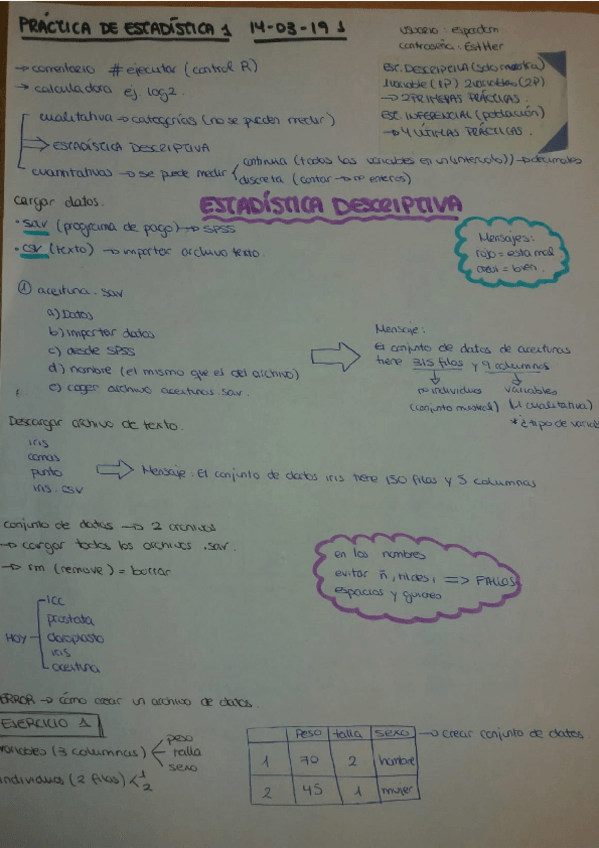 PRÁCTICA DE ESTADÍSTICA 1 14-03-19
usuario: espadcm
contraseña: Esther
→ comentario # ejecutar (control R)
→ calculadora ej. log2.
EST. DESCRIPTIVA (solo muestra)
1 variable (1P) 2 variables (2P)
→ 2 PRIMERAS PRÁCTICAS.
EST. INFERENCIAL (población)
→ 4 ÚLTIMAS PRÁCTICAS.
cualitativa → categorías (no se pueden medir)
→ ESTADÍSTICA DESCRIPTIVA
cuantitativas → se puede medir
continua (todas las variables en un intervalo) → decimales
discreta (contar → nº enteros)
cargar datos.
ESTADÍSTICA DESCRIPTIVA
· sav (programa de pago) → SPSS
· csv (texto) → importar archivo texto.
Mensajes:
rojo = esta mal
azul = bien.
① aceituna.sav
a) Datos
b) importar datos
c) desde SPSS
d) nombre (el mismo que el del archivo)
e) coger archivo aceitunas sav.
Mensaje:
El conjunto de datos de aceitunas
tiene 315 filas y 9 columnas
nº individuos variables
(conjunto muestral) cualitativa)
* ¿tipo de variab
Descargar archivo de texto.
iris
comas
punto
iris.csv
Mensaje: El conjunto de datos iris tiene 150 filas y 5 columnas
conjunto de datos → 2 archivos
→ cargar todos los archivos .sav.
→ rm (remove) = borrar
en los nombres
evitar ñ, tildes, => FALLOS
espacios y guiones
HOY
ICC
prostata
cloroplasto
iris
aceituna
ERROR → cómo crear un archivo de datos.
EJERCICIO 1
variables (3 columnas)
peso
talla
sexo
individuos (2 filas)
1
2
Peso talla sexo
1 70 2 hombre
2 45 1 mujer
→ crear conjunto de datos